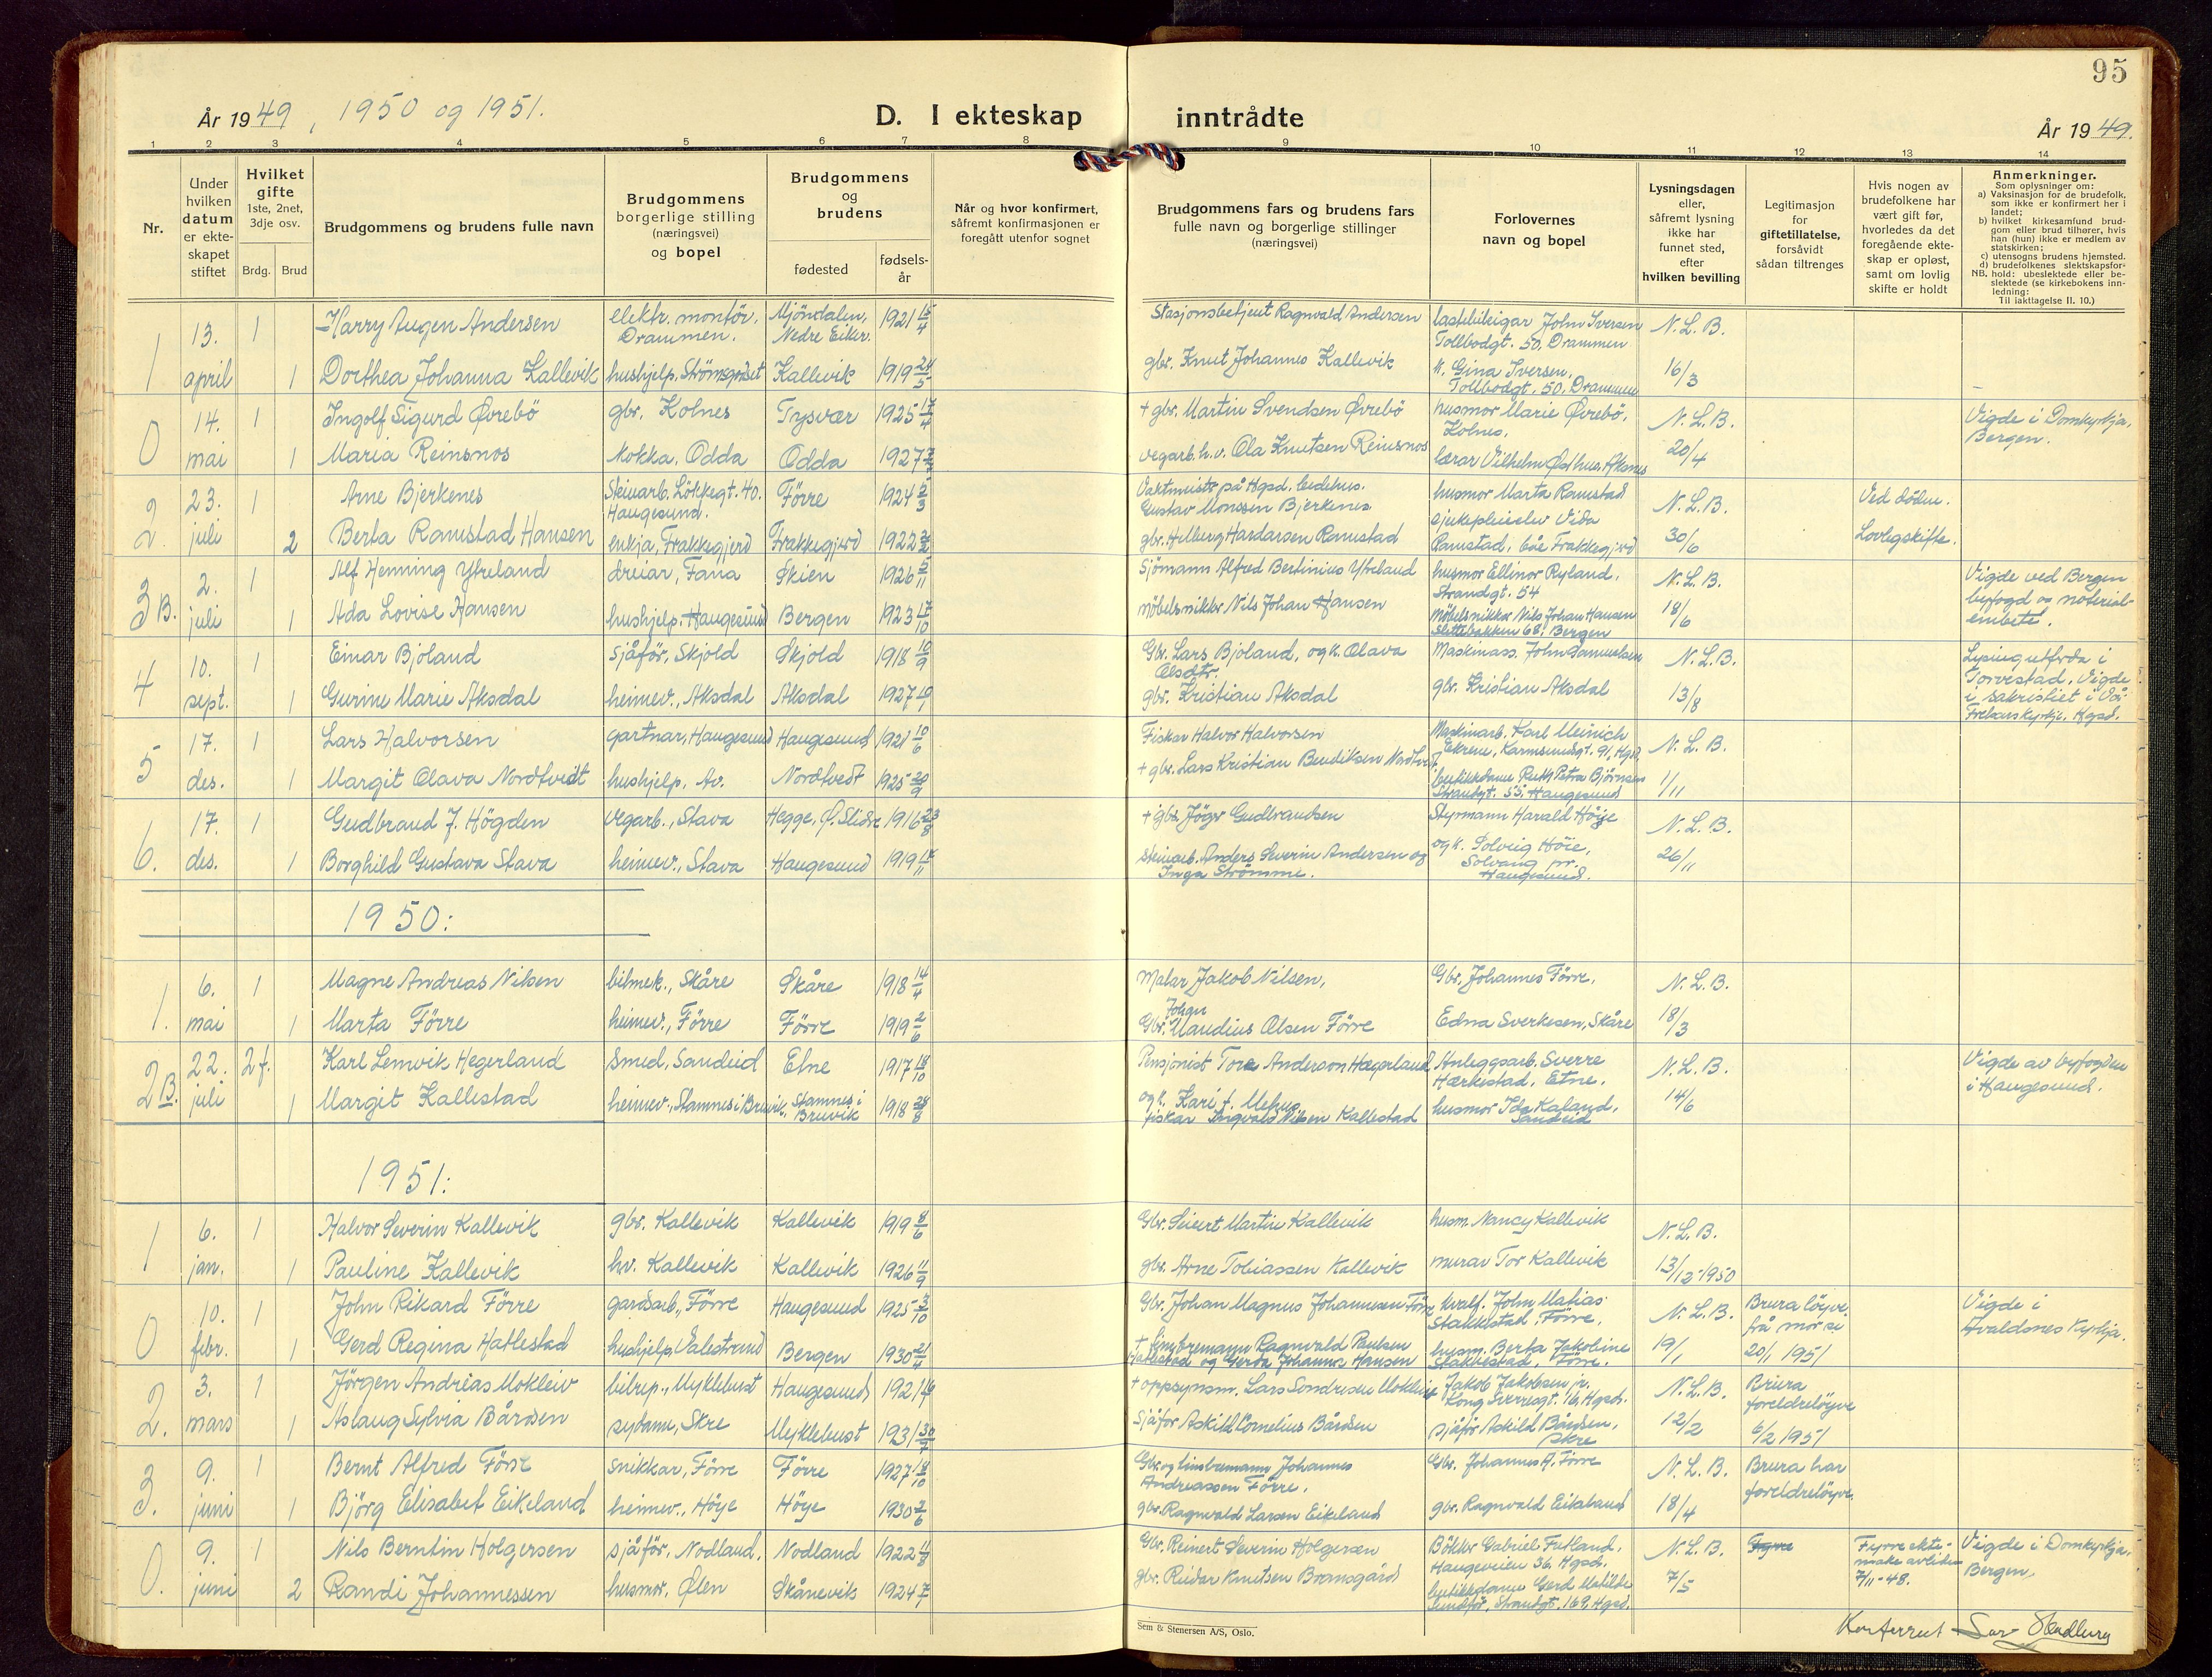 95
År 1949, 1950 og 1951.
D. I ekteskap inntrådte
År 1949.
1 2 3 4 5 6 7 8 9 10 11 12 13 14
Nr.
Under hvilken datum er ekte-skapet stiftet
Hvilket gifte 1ste, 2net, 3dje osv.
Brdg. Brud
Brudgommens og brudens fulle navn
Brudgommens borgerlige stilling (næringsvei) og bopel
Brudgommens og brudens
fødested
fødsels-år
Når og hvor konfirmert, såfremt konfirmasjonen er foregått utenfor sognet
Brudgommens fars og brudens fars fulle navn og borgerlige stillinger (næringsvei)
Forlovernes navn og bopel
Lysningsdagen eller, såfremt lysning ikke har funnet sted, efter hvilken bevilling
Legitimasjon for giftetillatelse, forsåvidt sådan tiltrenges
Hvis nogen av brudefolkene har vært gift før, hvorledes da det foregående ekte-skap er opløst, samt om lovlig skifte er holdt
Anmerkninger.
Som oplysninger om:
a) Vaksinasjon for de brudefolk, som ikke er konfirmert her i landet;
b) hvilket kirkesamfund brud-gom eller brud tilhører, hvis han (hun) ikke er medlem av statskirken;
c) utensogns brudens hjemsted.
d) brudefolkenes slektskapsfor-hold: ubeslektede eller be-slektede (se kirkebokens inn-ledning:
NB.
Til iakttagelse II. 10.)
1 13. 1 Harry Augen Andersen elektr. montör, Drammen. Mjöndalen, Nedre Eiker. 1921 15/4 Stasjonsbetjent Ragnvald Andersen lastebileigar John Iversen Tollbodgt. 50, Drammen N. L. B.
april 1 Dorthea Johanna Kallevik hushjelp, Strömsgodset Kallevik 1919 gbr. Knut Johannes Kallevik Gina Iversen, Tollbodgt. 50, Drammen 16/3
0 14. 1 Ingolf Sigurd Øvrebö gbr. Kolnes Tysvær 1925 17/4 + gbr. Martin Svendsen Øvrebö husmor Marie Øvrebö, Kolnes. N. L. B. Vigde i Domkyrkja, Bergen.
mai 1 Maria Reinsnos kokka, Odda Odda 1927 vegarb. h.v. Ola Knutsen Reinsnos lærar Vilhelm Østhus, Aksnes 20/4
2. 23. 1 Arne Bjerkenes Steinarb. Lökkegt. 40. Haugesund. Förre 1924 5/3 Vaktmeistr på Hgsd. bedehus. Gustav Monssen Bjerkenes husmor Marta Ramstad N. L. B. Ved döden.
juli 2 Berta Ramstad Hansen enkja, Frakkagjerd Frakkagjerd 1922 gbr. Hilberg Hardarsen Ramstad sjukepleieelev Vida Ramstad, båe Frakkagjerd 30/6 Lovlegskifte.
3 B. 2. 1 Alf Henning Ytreland dreiar, Fana Skien 1926 5/11 Sjömann Alfred Bertinius Ytreland husmor Ellinor Ryland, Strandgt. 54 N. L. B. Vigde ved Bergen byfogd og notarial-embete.
juli 1 Ada Lovise Hansen hushjelp. Haugesund Bergen 1923 17/10 möbelsnikkr Nils Johan Hansen Möbelsnikkar Nils Johan Hansen Slettebakken 68, Bergen 18/6
4 10. 1 Einar Bjoland Sjåför, Skjold Skjold 1918 10/9 Gbr. Lars Bjoland, og k. Olava Olsdtr. Maskinass. John Samuelsen N. L. B. Lysing utförda i Torvestad. Vigde i sakristiet i Vår Frelsarskyrkje. Hgsd.
sept. 1 Gurine Marie Aksdal heimev., Aksdal Aksdal 1927 gbr. Kristian Aksdal gbr. Kristian Aksdal 13/8
5 17. 1 Lars Halvorsen gartnar, Haugesund Haugesund 1921 10/6 Fiskar Halvor Halvorsen Maskinarb. Karl Meinich Ekrene, Karmsundgt. 91, Hgsd. N. L. B.
des. 1 Margit Olava Nordtvedt hushjelp, Av. Nordtvedt 1925 20/9 + gbr. Lars Kristian Bendiksen Nordtvedt butikkdame Ruth Petra Björnsen Strandgt. 55, Haugesund 1/11
6. 17. 1 Gudbrand J. Högden vegarb., Stava Hegge, Ø. Slidre 1916 23/8 + gbr. Jöger Gudbrandsen Styrmann Harald Höye N. L. B.
des. 1 Borghild Gustava Stava heimev., Stava Haugesund 1919 Steinarb. Anders Severin Andersen og Inga Strömme. og k. Solveig Höie, Solvang pr. Haugesund. 26/11
1950:
1. 6. 1 Magne Andreas Nilsen bilmek., Skåre Skåre 1918 14/4 Malar Jakob Nilsen, Gbr. Johannes Förre, N. L. B.
mai 1 Marta Förre heimev., Förre Förre 1919 2/6 Gbr. Johan Klaudius Olsen Förre Edna Sverkesen, Skåre 18/3
2 B. 22. 2 f. Karl Lemvik Hegerland Smed, Sandeid Etne 1917 18/10 Pensjonist Tore Anderson Hægerland Anleggsarb. Sverre Hærkestad, Etne. N. L. B. Vigde av byfogden i Haugesund.
juli 1 Margit Kallestad heimev., Stamnes i Bruvik Stamnes i Bruvik 1918 28/8 og k. Kari f. Mehus fiskar Ingvald Nilsen Kallestad husmor Ida Kaland, Sandeid 14/6
1951:
1 6. 1 Halvor Severin Kallevik gbr. Kallevik Kallevik 1919 8/6 Gbr. Seivert Martin Kallevik husm. Nancy Kallevik N. L. B.
jan. 1 Pauline Kallevik hv. Kallevik Kallevik 1926 11/9 gbr. Arne Tobiassen Kallevik murar Tor Kallevik 13/12-1950
0 10. 1 John Rikard Förre gardsarb., Förre Haugesund 1925 3/10 Gbr. Johan Magnus Johannesen Förre kvalf. John Matias Stakkestad, Förre, N. L. B. Brura löyve frå mor si Vigde i Avaldsnes kyrkja.
febr. 1 Gerd Regina Hatlestad hushjelp, Valestrand Bergen 1930 21/4 + Timbremann Ragnvald Paulsen Hatlestad og Gerda Johanna Hansen husm. Berta Jakobine Stakkestad, Förre. 19/1 20/1 1951
2. 3. 1 Jörgen Andrias Mokleiv bilrep., Myklebust Haugesund 1921 + oppsynsm. Lars Sondresen Mokleiv Jakob Jakobsen jr. Kong Sverresgt. 16, Hgsd. N. L. B. Brura foreldrelöyve
mars 1 Aslaug Sylvia Bårdsen sydame, Skre Myklebust 1931 30/7 Sjåför Askild Cornelius Bårdsen sjåför Askild Bårdsen, Skre 12/2 6/2 1951
3. 9. 1 Bernt Alfred Förre Snikkar, Förre Förre 1927 18/10 Gbr. og timbremann Johannes Andreassen Förre. Gbr. Johannes A. Förre N. L. B. Brura har foreldrelöyve.
juni 1 Björg Elisabet Eikeland heimev., Höye Höye 1930 2/6 gbr. Ragnvald Larsen Eikeland gbr. Ragnvald Eikeland 18/4
0. 9. 1 Nils Berntin Holgersen sjåför, Nodland. Nodland 1922 11/8 Gbr. Reinert Severin Holgersen Bökker Gabriel Futland, Haugeveien 36, Hgsd. N. L. B. Fyrre Fyrre ekte-make avliden 7/11-48. Vigde i Domkyrkja, Bergen.
juni 2 Randi Johannessen husmor, Ølen Skånevik 1924 gbr. Reidar Knutsen Bransgård butikkdame Gerd Matilde Sundför, Strandgt. 169, Hgsd. 7/5
Sem & Stenersen A/S, Oslo.
Konferert